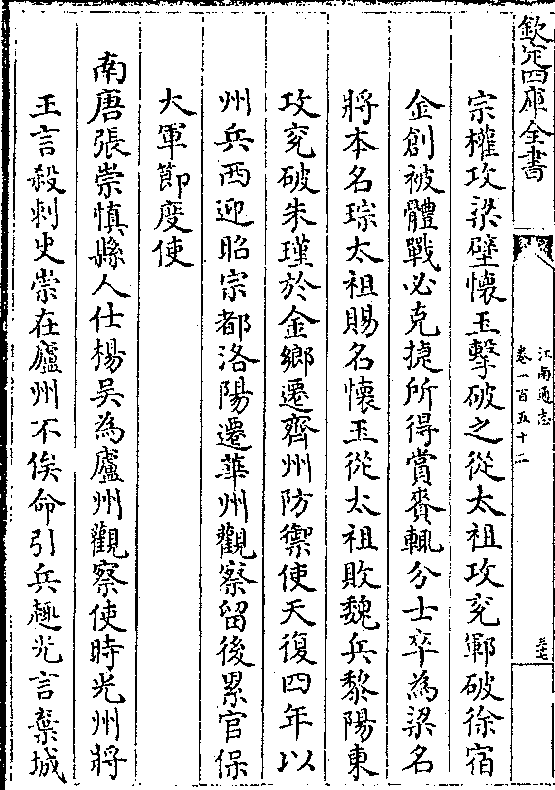 欽定四庫全書
江南通志
卷一百五十二
宗權攻梁壁懷玉擊破之從太祖攻兖鄆破徐宿
金創被體戰必克捷所得賞賚輒分士卒為梁名
將本名琮太祖賜名懷玉從太祖敗魏兵黎陽東
攻兖破朱瑾於金鄉遷齊州防禦使天復四年以
州兵西迎昭宗都洛陽遷華州觀察留後累官保
大軍節度使
南唐張崇慎縣人仕楊吳為廬州觀察使時光州將
王言殺刺史崇在廬州不俟命引兵趣光言棄城